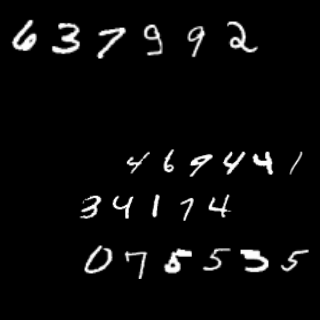 637992
469441
34174
075535